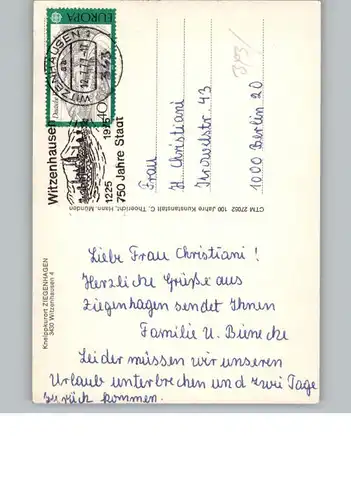 EUROPA
40
WITZENHAUSEN 1
343
Witzenhausen
1225 1975
750 Jahre Stadt
Frau
H. Christiani
1000 Berlin 20
CTM 27052 100 Jahre Kunstanstalt C. Thoericht, Hann. Münden
Kneippkurort ZIEGENHAGEN
3430 Witzenhausen 4
Liebe Frau Christiani!
Herzliche Grüße aus
Ziegenhagen sendet Ihnen
Familie U. Bienecke
Leider müssen wir unseren
Urlaub unterbrechen und zwei Tage
zurück kommen.